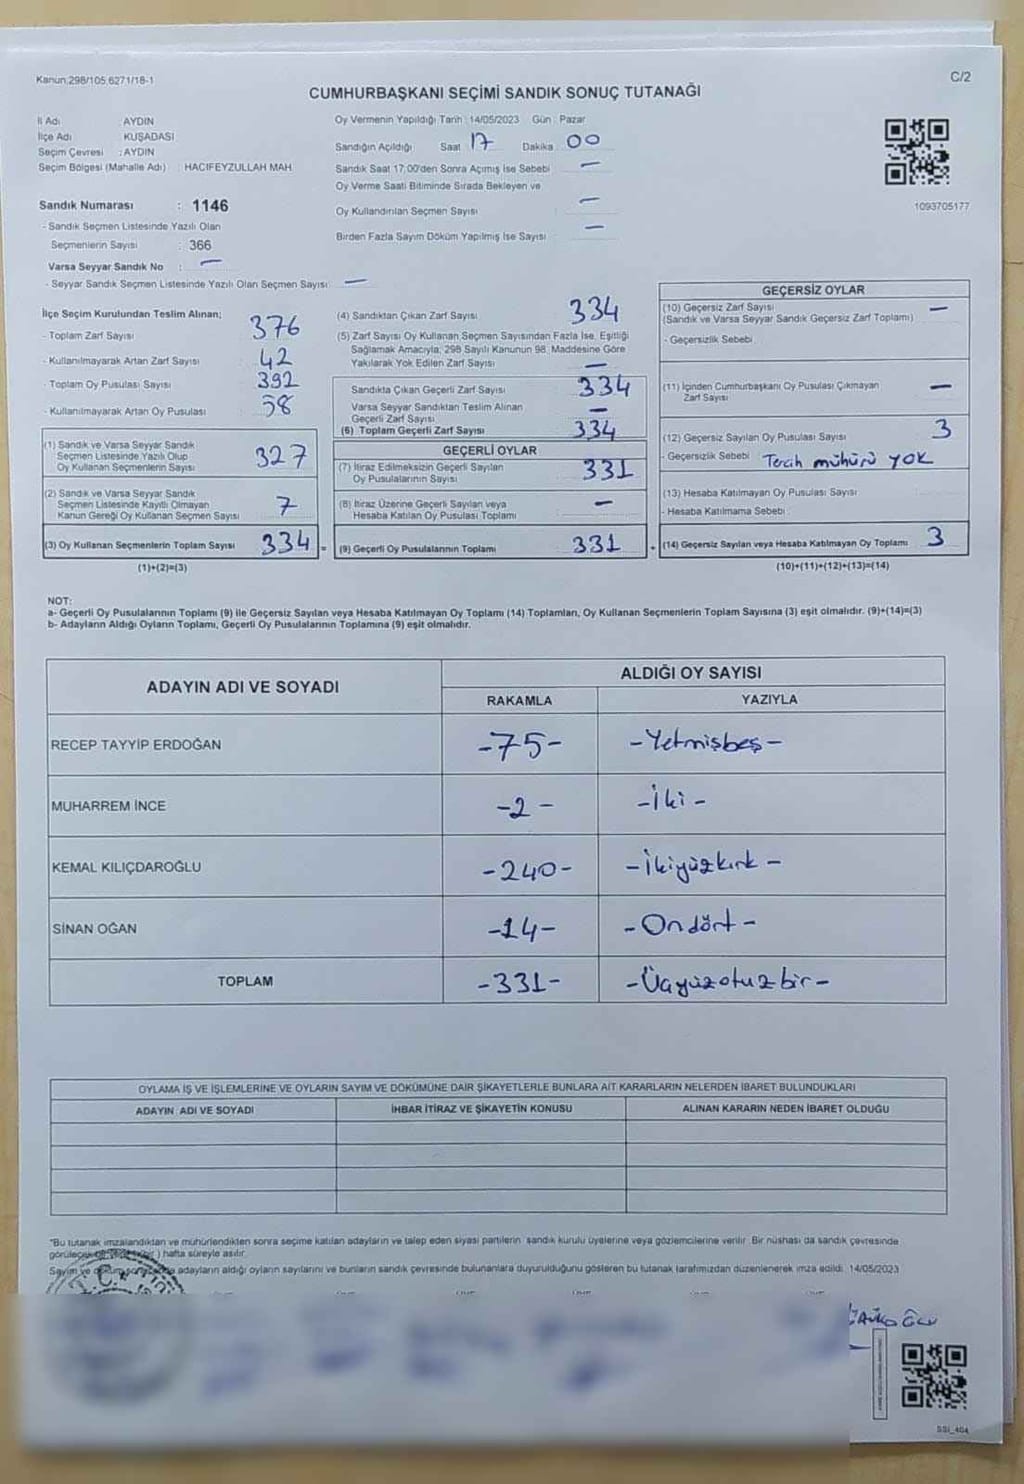 Kanun:298/105,6271/18-1
C/2
CUMHURBAŞKANI SEÇİMİ SANDIK SONUÇ TUTANAĞI
İl Adı : AYDIN
İlçe Adı : KUŞADASI
Seçim Çevresi : AYDIN
Seçim Bölgesi (Mahalle Adı) : HACIFEYZULLAH MAH
Sandık Numarası : 1146
- Sandık Seçmen Listesinde Yazılı Olan
Seçmenlerin Sayısı : 366
Varsa Seyyar Sandık No : —
- Seyyar Sandık Seçmen Listesinde Yazılı Olan Seçmen Sayısı : —
Oy Vermenin Yapıldığı Tarih : 14/05/2023 Gün : Pazar
Sandığın Açıldığı Saat 17 Dakika : 00
Sandık Saat 17:00'den Sonra Açımış İse Sebebi : —
Oy Verme Saati Bitiminde Sırada Bekleyen ve
Oy Kullandırılan Seçmen Sayısı : —
Birden Fazla Sayım Döküm Yapılmış İse Sayısı : —
1093705177
İlçe Seçim Kurulundan Teslim Alınan;
- Toplam Zarf Sayısı 376
- Kullanılmayarak Artan Zarf Sayısı 42
- Toplam Oy Pusulası Sayısı 392
- Kullanılmayarak Artan Oy Pusulası 58
(1) Sandık ve Varsa Seyyar Sandık
Seçmen Listesinde Yazılı Olup
Oy Kullanan Seçmenlerin Sayısı 327
(2) Sandık ve Varsa Seyyar Sandık
Seçmen Listesinde Kayıtlı Olmayan
Kanun Gereği Oy Kullanan Seçmen Sayısı 7
(3) Oy Kullanan Seçmenlerin Toplam Sayısı 334 =
(1)+(2)=(3)
(4) Sandıktan Çıkan Zarf Sayısı 334
(5) Zarf Sayısı Oy Kullanan Seçmen Sayısından Fazla İse, Eşitliği
Sağlamak Amacıyla, 298 Sayılı Kanunun 98. Maddesine Göre
Yakılarak Yok Edilen Zarf Sayısı —
Sandıkta Çıkan Geçerli Zarf Sayısı 334
Varsa Seyyar Sandıktan Teslim Alınan
Geçerli Zarf Sayısı —
(6) Toplam Geçerli Zarf Sayısı 334
GEÇERLİ OYLAR
(7) İtiraz Edilmeksizin Geçerli Sayılan
Oy Pusulalarının Sayısı 331
(8) İtiraz Üzerine Geçerli Sayılan veya
Hesaba Katılan Oy Pusulası Toplamı —
(9) Geçerli Oy Pusulalarının Toplamı 331 +
GEÇERSİZ OYLAR
(10) Geçersiz Zarf Sayısı —
(Sandık ve Varsa Seyyar Sandık Geçersiz Zarf Toplamı)
- Geçersizlik Sebebi
(11) İçinden Cumhurbaşkanı Oy Pusulası Çıkmayan
Zarf Sayısı —
(12) Geçersiz Sayılan Oy Pusulası Sayısı 3
- Geçersizlik Sebebi Tercih mühürü yok
(13) Hesaba Katılmayan Oy Pusulası Sayısı
- Hesaba Katılmama Sebebi
(14) Geçersiz Sayılan veya Hesaba Katılmayan Oy Toplamı 3
(10)+(11)+(12)+(13)=(14)
NOT:
a- Geçerli Oy Pusulalarının Toplamı (9) ile Geçersiz Sayılan veya Hesaba Katılmayan Oy Toplamı (14) Toplamları, Oy Kullanan Seçmenlerin Toplam Sayısına (3) eşit olmalıdır. (9)+(14)=(3)
b- Adayların Aldığı Oyların Toplamı, Geçerli Oy Pusulalarının Toplamına (9) eşit olmalıdır.
ADAYIN ADI VE SOYADI
ALDIĞI OY SAYISI
RAKAMLA YAZIYLA
RECEP TAYYİP ERDOĞAN -75- -Yetmişbeş-
MUHARREM İNCE -2- -İki-
KEMAL KILIÇDAROĞLU -240- -İkiyüzkırk-
SİNAN OĞAN -14- -Ondört-
TOPLAM -331- -Üçyüzotuzbir-
OYLAMA İŞ VE İŞLEMLERİNE VE OYLARIN SAYIM VE DÖKÜMÜNE DAİR ŞİKAYETLERLE BUNLARA AİT KARARLARIN NELERDEN İBARET BULUNDUKLARI
ADAYIN ADI VE SOYADI İHBAR İTİRAZ VE ŞİKAYETİN KONUSU ALINAN KARARIN NEDEN İBARET OLDUĞU
"Bu tutanak imzalandıktan ve mühürlendikten sonra seçime katılan adayların ve talep eden siyasi partilerin sandık kurulu üyelerine veya gözlemcilerine verilir. Bir nüshası da sandık çevresinde
görülecek bir yere (bir) hafta süreyle asılır.
Sayım ve döküm sonucunda adayların aldığı oyların sayılarını ve bunların sandık çevresinde bulunanlara duyurulduğunu gösteren bu tutanak tarafımızdan düzenlenerek imza edildi. 14/05/2023
T.C.
SSI_404